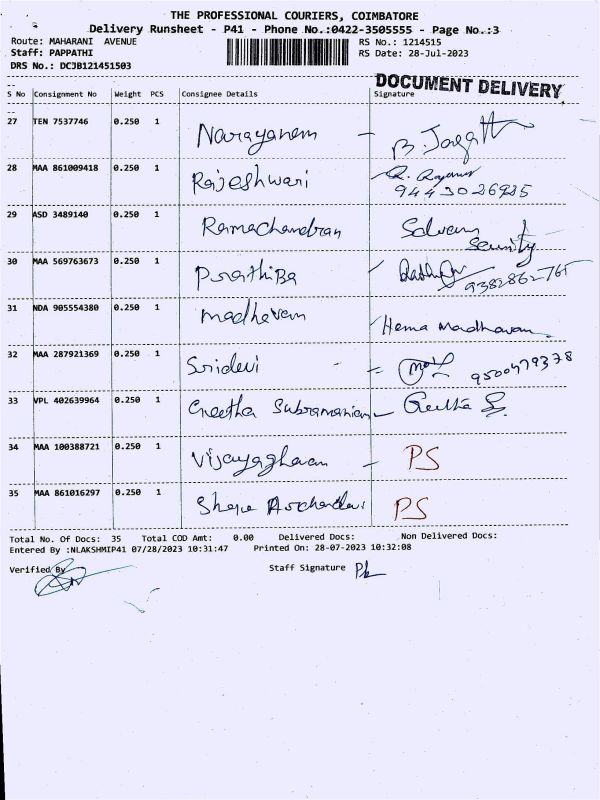 THE PROFESSIONAL COURIERS, COIMBATORE
Delivery Runsheet - P41 - Phone No.:0422-3505555 - Page No.:3
Route: MAHARANI AVENUE RS No.: 1214515
Staff: PAPPATHI RS Date: 28-Jul-2023
DRS No.: DCJB121451503
DOCUMENT DELIVERY
S No Consignment No Weight PCS Consignee Details Signature
27 TEN 7537746 0.250 1 Narayanem -
28 MAA 861009418 0.250 1 Rajeshwari
29 ASD 3489140 0.250 1 Ramachandran
Security
30 MAA 569763673 0.250 1 PrathiBa
31 NDA 905554380 0.250 1 madhavam Hema Madhavan
32 MAA 287921369 0.250 1 Sridevi - 9500479378
33 VPL 402639964 0.250 1 Geetha Subramanian - Geetha S.
34 MAA 100388721 0.250 1 Vijayaghavan - PS
35 MAA 861016297 0.250 1 PS
Total No. Of Docs: 35 Total COD Amt: 0.00 Delivered Docs: Non Delivered Docs:
Entered By :NLAKSHMIP41 07/28/2023 10:31:47 Printed On: 28-07-2023 10:32:08
Verified By Staff Signature